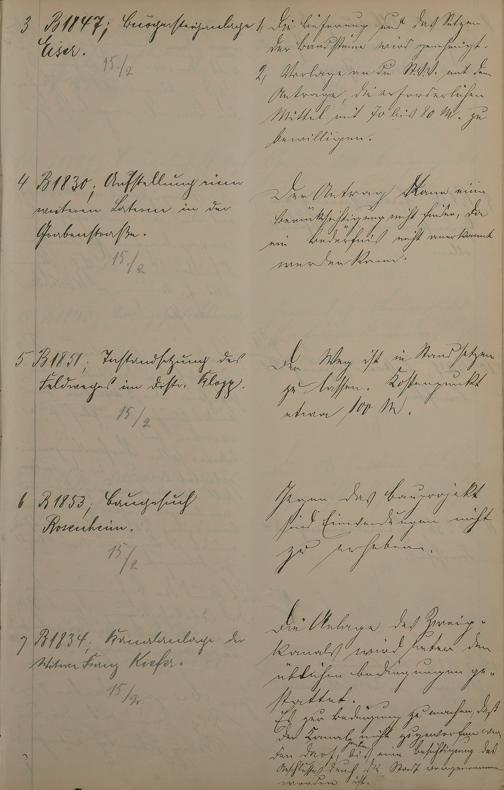 3 B1847; Bürgersteiganlage
Eiser.
15./2
1, Die Lieferung und das Setzen
der Bandsteine wird genehmigt.
2, Vorlage an die St.V.V. mit dem
Antrage, die erforderlichen
Mittel mit 70 bis 80 M. zu
bewilligen.
4 B1830; Aufstellung einer
weiteren Laterne in der
Grabenstraße.
15./2
Der Antrag kann eine
Berücksichtigung nicht finden, da
ein Bedürfnis nicht anerkannt
werden kann.
5 B1851; Instandsetzung des
Feldweges im Distr. Klopp.
15/2
Der Weg ist in Stand setzen
zu lassen. Kostenpunkt
etwa 100 M.
6 B1853; Baugesuch
Rosenheim.
15/2
Gegen das Bauprojekt
sind Einwendungen nicht
zu erheben.
7 B1834. Kanalanlage der
Witwe Franz Kiefer.
15/2.
Die Anlage des Zweig-
kanals wird unter den
üblichen Bedingungen ge-
stattet.
Es zur Bedingung zu machen, daß
der Kanal nicht zugeworfen wer-
den darf, bis eine Besichtigung des
Anschlusses durch die Stadt vorgenommen
worden ist.